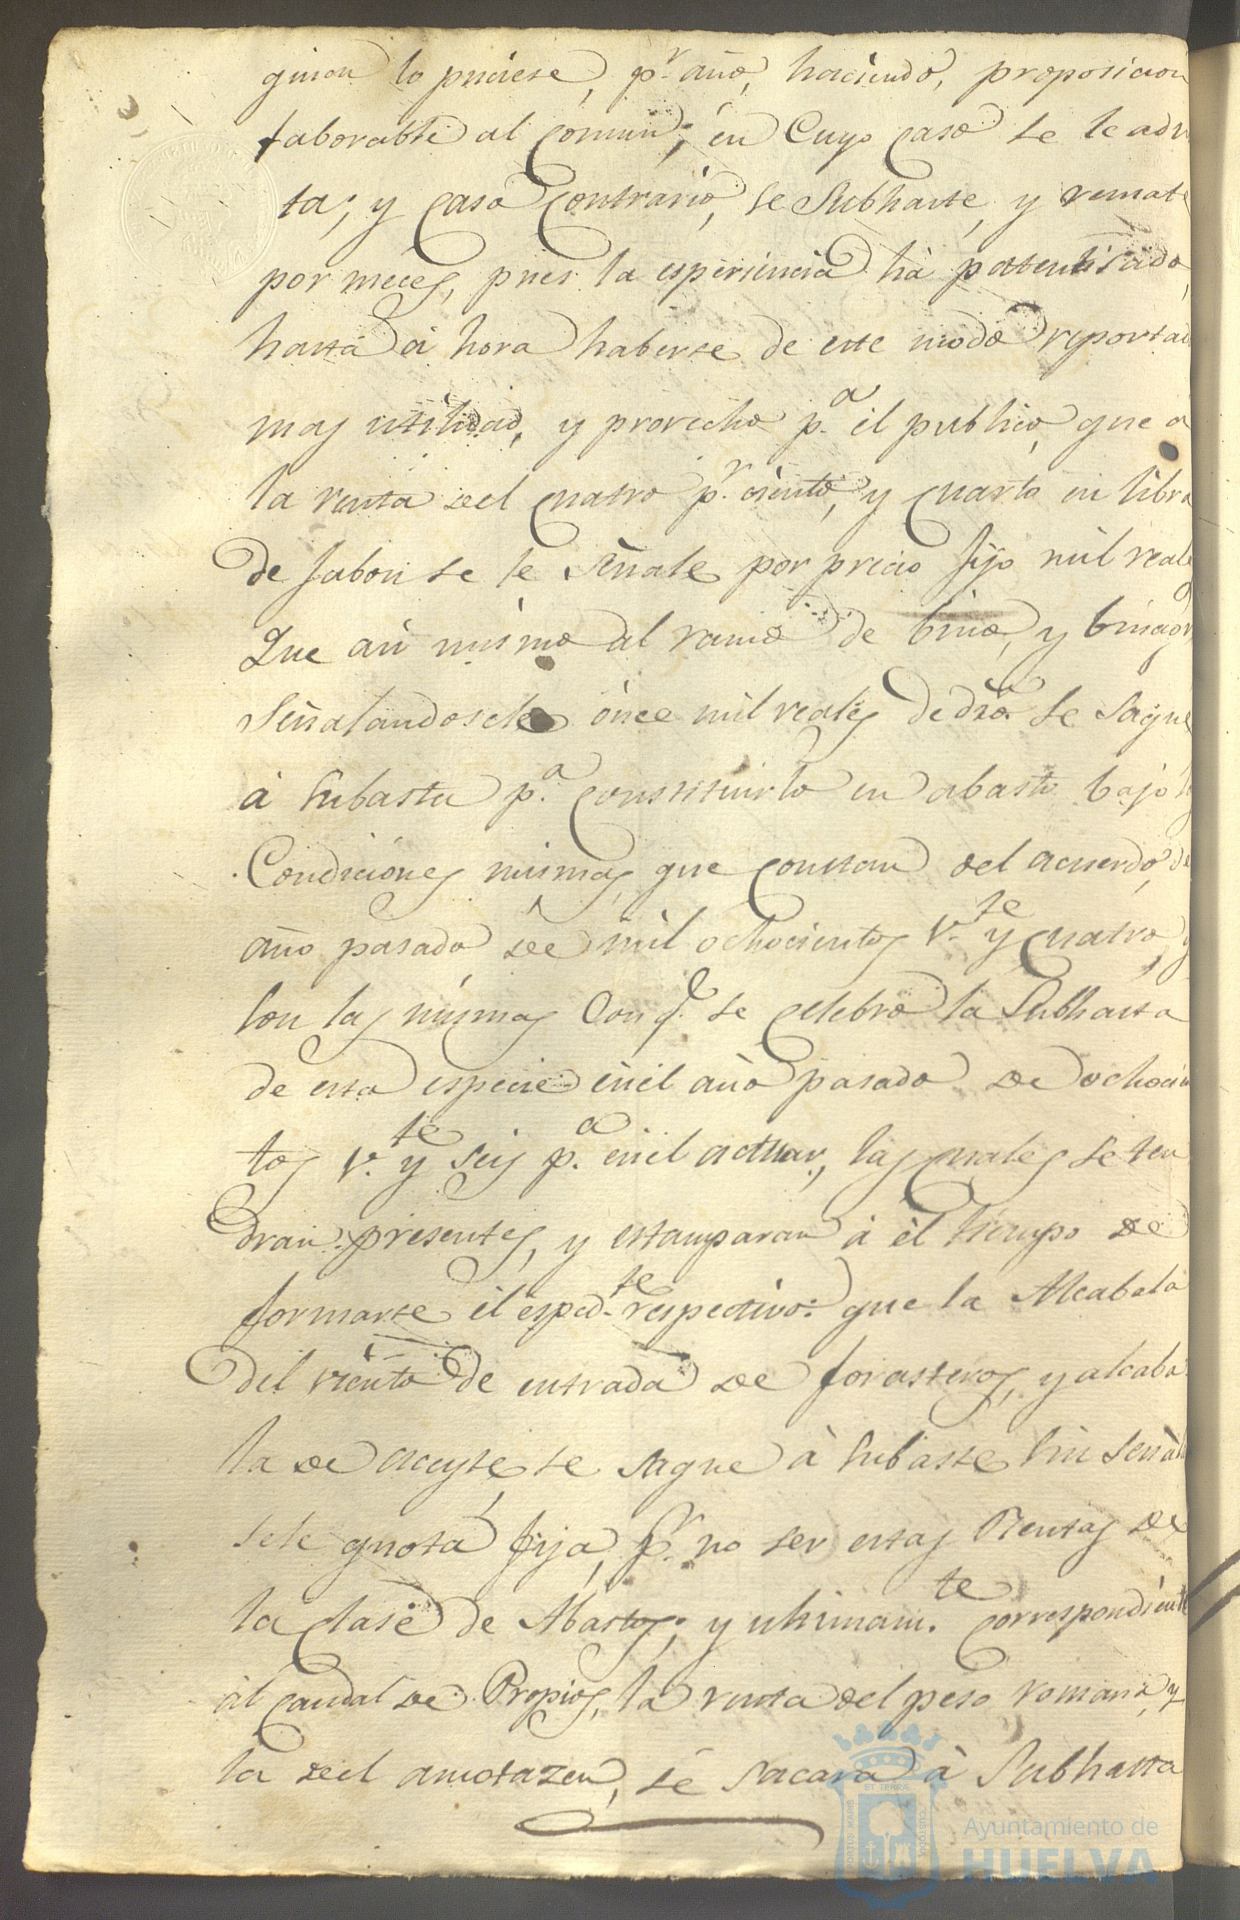 quien lo puciese, p.r año, haciendo, proposicion
faborable al Comun; en Cuyo Caso se le adm
ta; y Caso Contrario, se Subhaste, y remate
por meces, pues la esperiencia hà patentisado,
hasta à hora haberse de este modo reportad
mas utilidad, y provecho p.a el publico, que a
la renta del Cuatro p.r ciento, y Cuarto en libra
de Jabon se le señale por precio fijo mil reale
Que asi mismo al ramo de bino, y binagr
Señalandosele once mil reales de dro. se saque
à subasta p.a Constituirlo en abasto bajo
Condiciones mismas, que Constan del acuerdo, de
año pasado de mil ochocientos v.te y Cuatro, y
Con las mismas Con q.e se Celebro la Subhasta
de esta especie en el año pasado de ochocien
tos v.te y seis p.a en el actuar, las Cuales se ten
dran presentes, y estamparan à el tiempo de
formarse el esped.te respectivo: que la Alcabala
del viento de entrada de forasteros, y alcaba
la de aceyte, se saque à subaste sin señàl
sele quota fija, p.r no ser estas Rentas de
la Clase de Abastos; y ultimam.te Correspondiente
al Caudal de Propios, la renta del peso romana, y
la del amotazen, se sacara à Subhasta
Ayuntamiento de
HUELVA